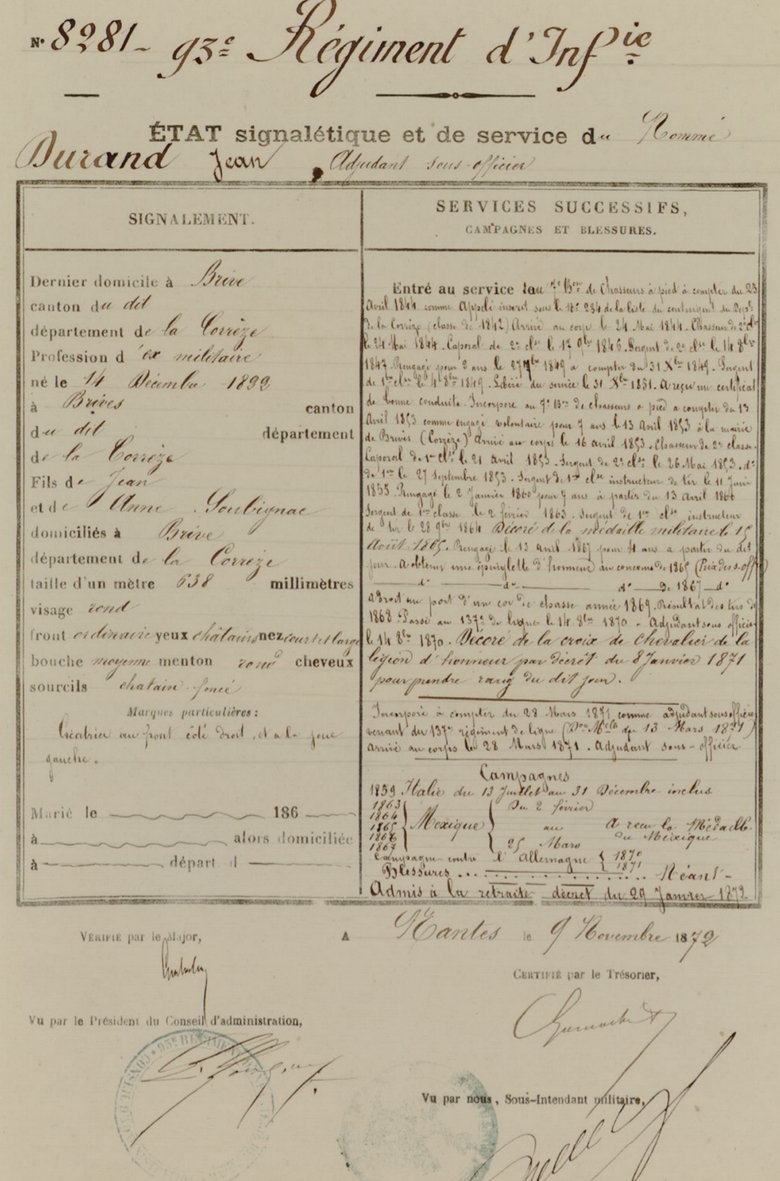 N° 8281 - 93e Régiment d'Infie
ÉTAT signalétique et de service du Nommé
Durand Jean, Adjudant sous-officier
SIGNALEMENT.
Dernier domicile à Brive
canton du dit
département de la Corrèze
Profession d'ex militaire
né le 14 Décembre 1822
à Brives canton
du dit département
de la Corrèze
Fils de Jean
et de Anne Soubignac
domiciliés à Brive
département de la Corrèze
taille d'un mètre 638 millimètres
visage rond
front ordinaire yeux châtains nez court et large
bouche moyenne menton rond cheveux
sourcils chatain foncé
Marques particulières :
Cicatrice au front côté droit, et a la joue
gauche.
Marié le 186
à alors domiciliée
à départ d
SERVICES SUCCESSIFS,
CAMPAGNES ET BLESSURES.
Entré au service au 7e Bon de Chasseurs à pied à compter du 23
Avril 1844 comme Appelé inscrit sous le N° 254 de la liste du contingent du Dépt
de la Corrèze (classe de 1842) Arrivé au corps le 24 Mai 1844. Chasseur de 2e cl
le 24 Mai 1844. Caporal de 2e cle le 1er 9bre 1846. Sergent de 2e cle le 14 8bre
1847. Rengagé pour 2 ans le 27 9bre 1849 à compter du 31 Xbre 1849. Sergent
de 1re cle le 4 8bre 1849. Libéré du service le 31 Xbre 1851. A reçu un certificat
de bonne conduite. Incorporé au 7e Bon de chasseurs a pied a compter du 13
Avril 1853 comme engagé volontaire pour 7 ans le 13 Avril 1853 à la mairie
de Brives (Corrèze) Arrivé au corps le 16 avril 1853. Chasseur de 2e classe
Caporal de 1re cle le 21 avril 1853. Sergent de 2e cle le 26 Mai 1853. do
de 1re le 27 Septembre 1853. Sergent de 1re cle instructeur de tir le 11 Juin
1855. Rengagé le 2 Janvier 1860 pour 7 ans à partir du 13 Avril 1860
Sergent de 1re classe le 2 février 1863. Sergent de 1re cle instructeur
de tir le 28 9bre 1864 Décoré de la médaille militaire le 15
Août 1865. Rengagé le 13 Avril 1867 pour 4 ans a partir du dit
jour. A obtenu une épinglette d'honneur au concours de 1865 (Prix des s.offrs)
do do do de 1867 do
a Droit au port d'un cor de chasse année 1869. Résultat des tirs de
1868. Passé au 137e de ligne le 14 8bre 1870. Adjudant sous officier
le 14 8bre 1870. Décoré de la croix de chevalier de la
légion d'honneur par décret du 8 Janvier 1871
pour prendre rang du dit jour.
Incorporé à compter du 28 Mars 1871 comme adjudant sous officier
venant du 137e régiment de ligne (Don Mlle du 13 Mars 1871)
arrivé au corps le 28 Mars 1871. Adjudant sous-officier
Campagnes
1859 Italie du 13 Juillet au 31 Décembre inclus
1863
1864
1865
1866
1867
Mexique
Du 2 février
au
25 Mars
A reçu la Médaille
du Mexique
Campagne contre l'Allemagne 1870
1871
Blessures . . . . . . Néant -
Admis à la retraite décret du 29 Janvier 1872
A Nantes le 9 Novembre 1872
VÉRIFIÉ par le Major,
CERTIFIÉ par le Trésorier,
Vu par le Président du Conseil d'administration,
Vu par nous, Sous-Intendant militaire,